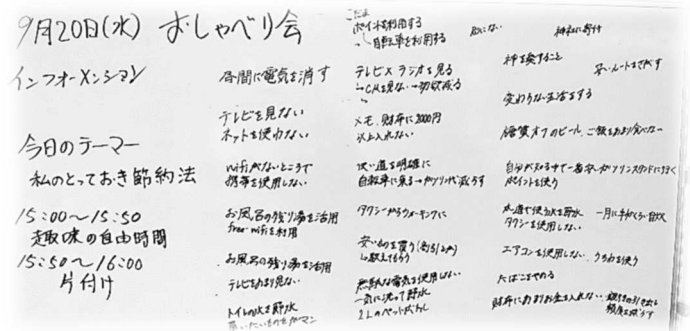 9月20日(水) おしゃべり会
インフォーメンション
今日のテーマー
私のとっておき節約法
15:00〜15:50
趣味の自由時間
15:50〜16:00
片付け
昼間に電気を消す
テレビを見ない
ネットを使わない
wifiがないところで
携帯を使用しない
お風呂の残り湯を活用
free-wifiを利用
お風呂の残り湯を活用
テレビあまり見ない
トイレの水を節水
ポイントを利用する
自転車を利用する
テレビ×ラジオを見る
メモ、財布に2000円
以上入れない
使い道を明確に
自転車に乗る→ガソリン代減らす
タクシーからウォーキングに
安いものを買う
無駄な電気を使用しない
一気に洗って節水
2Lのペットボトル
神社に寄付
物を売ること
安いルートをさがす
変わりない生活をする
糖質オフのビール、ご飯をあまり食べない
自分が知る中で一番安いガソリンスタンドに行く
ポイントを使う
水道で使う水を節水
タクシーを使用しない
エアコンを使用しない、うちわを使う
たばこをやめる
財布にあまりお金を入れない